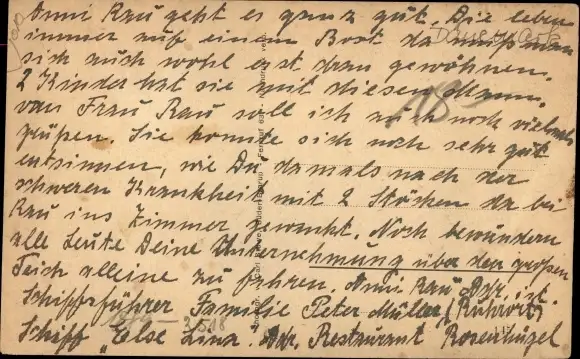 Anni Rau geht es ganz gut. Die leben
immer auf einem Boot da muß man
sich auch wohl erst dran gewöhnen.
2 Kinder hat sie mit diesem Mann.
von Frau Rau soll ich auch noch vielmals
grüßen. Sie konnte sich noch sehr gut
entsinnen, wie Du damals nach der
schweren Krankheit mit 2 Stöcken da bei
Rau ins Zimmer gewankt. Noch bewundern
alle Leute Deine Unternehmung über den großen
Teich alleine zu fahren. Anni Rau Adr. ist.
Schiffsführer Familie Peter Müller (Ruhrort)
Schiff "Else Lina. Adr. Restaurant Rosenhügel